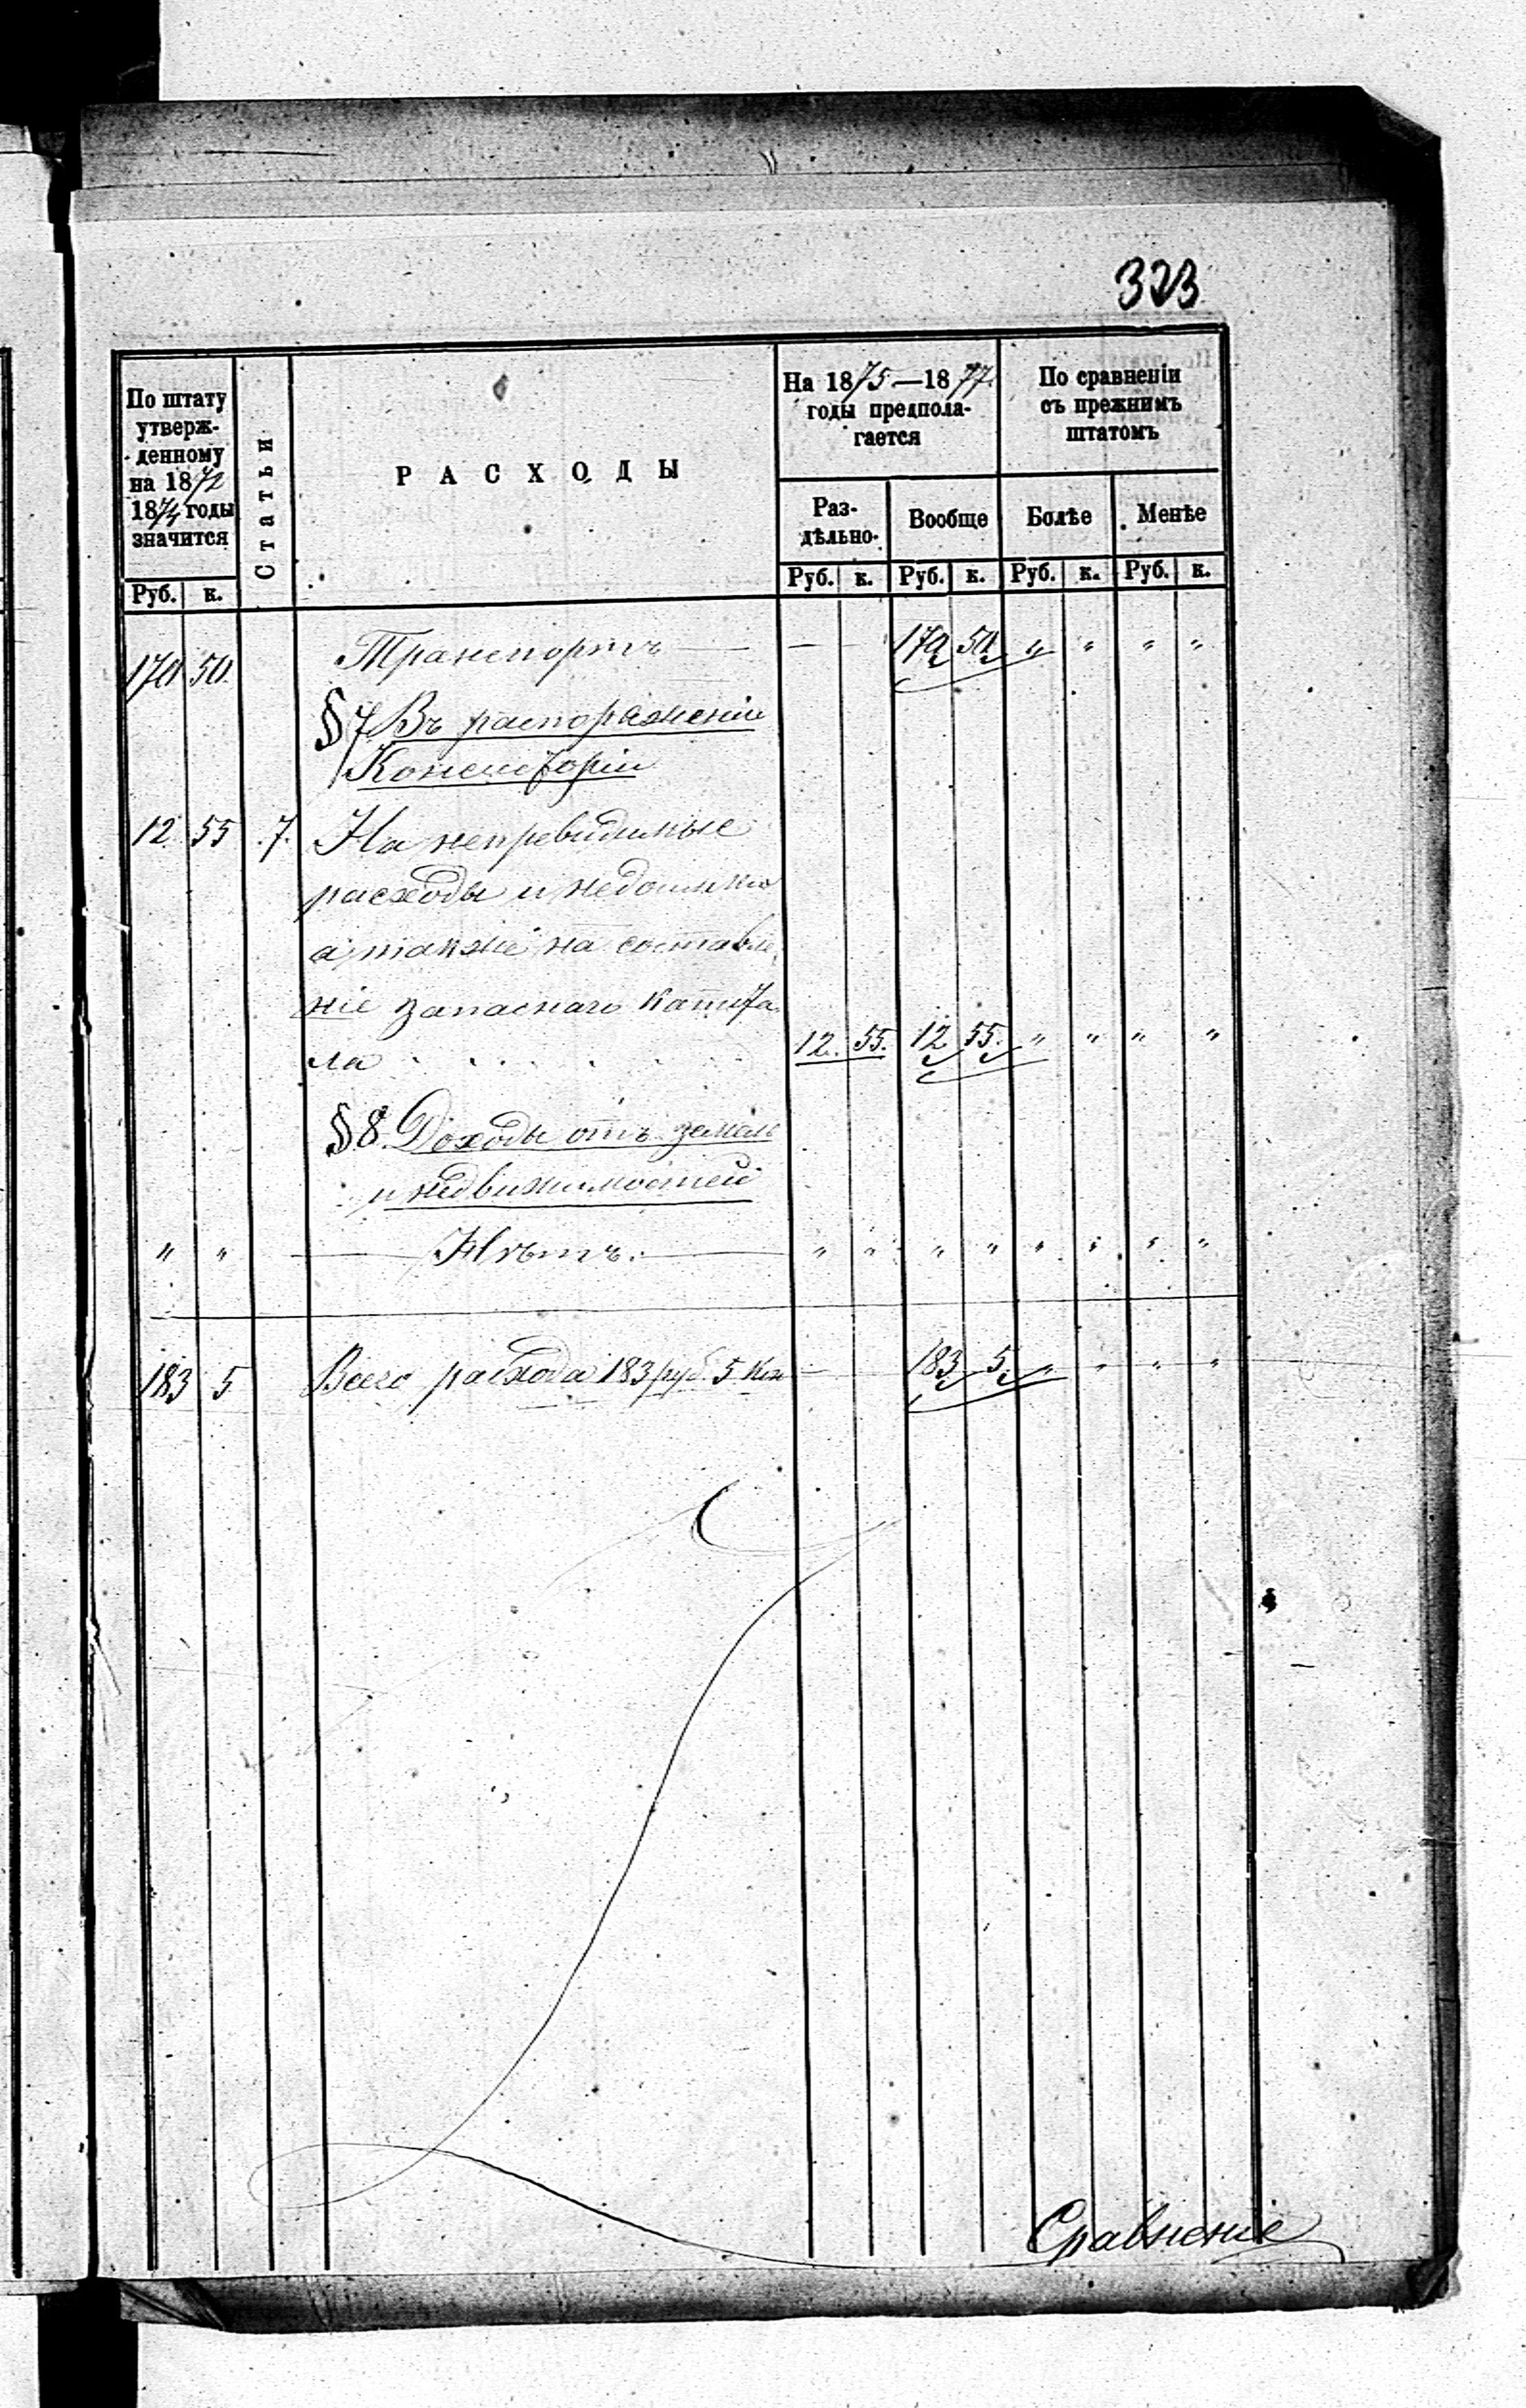 323
По штату утверж-денному на 1872 1874 годы значится
Статьи
РАСХОДЫ
На 1875—1877 годы предпола-гается
По сравненіи съ прежнимъ штатомъ
Раз-дѣльно
Вообще
Болѣе
Менѣе
Руб. к. Руб. к. Руб. к. Руб. к. Руб. к.
170 50 Транспортъ — — — 170 50 " " " "
§ 7 Въ распоряженіи
Консисторіи
12 55 7. На непревидимые
расходы и недоимки
а также на составле
ніе запаснаго капита
ла . . . . . . 12. 55. 12 55. " " " "
§ 8. Доходы отъ земель
и недвижимостей
" " — Нѣтъ. — " " " " " " " "
183 5 Всего расхода 183 руб. 5 коп — 183 5. " " " "
Сравненіе